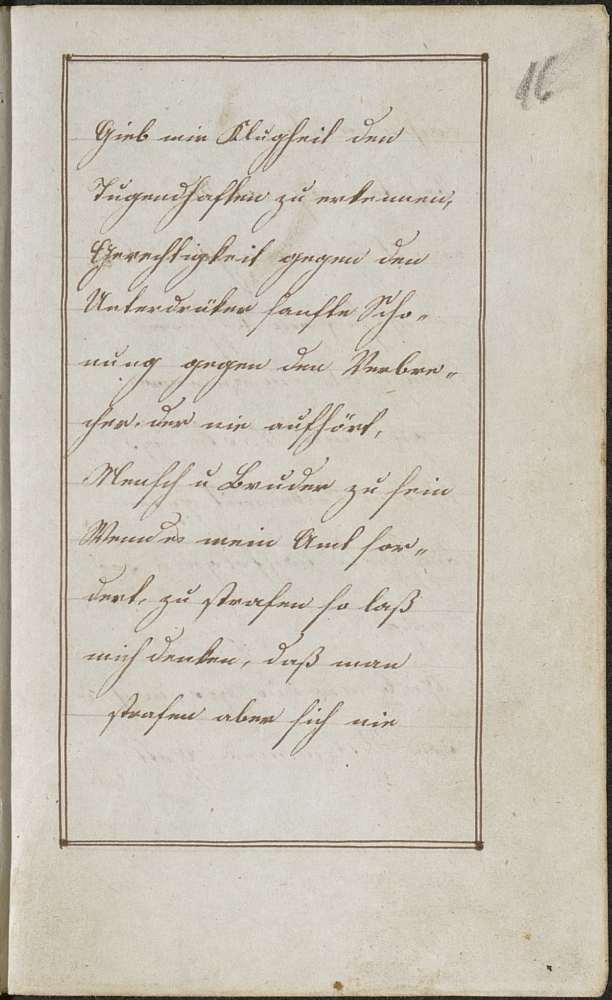 16
Gieb mir Klugheit den
Tugendhaften zu erkennen,
Gerechtigkeit gegen den
Unterdrüker sanfte Scho„
nung gegen den Verbre„
cher, der nie aufhört,
Mensch u Bruder zu sein
Wenn es mein Amt for„
dert, zu strafen so laß
mich denken, daß man
strafen aber sich nie